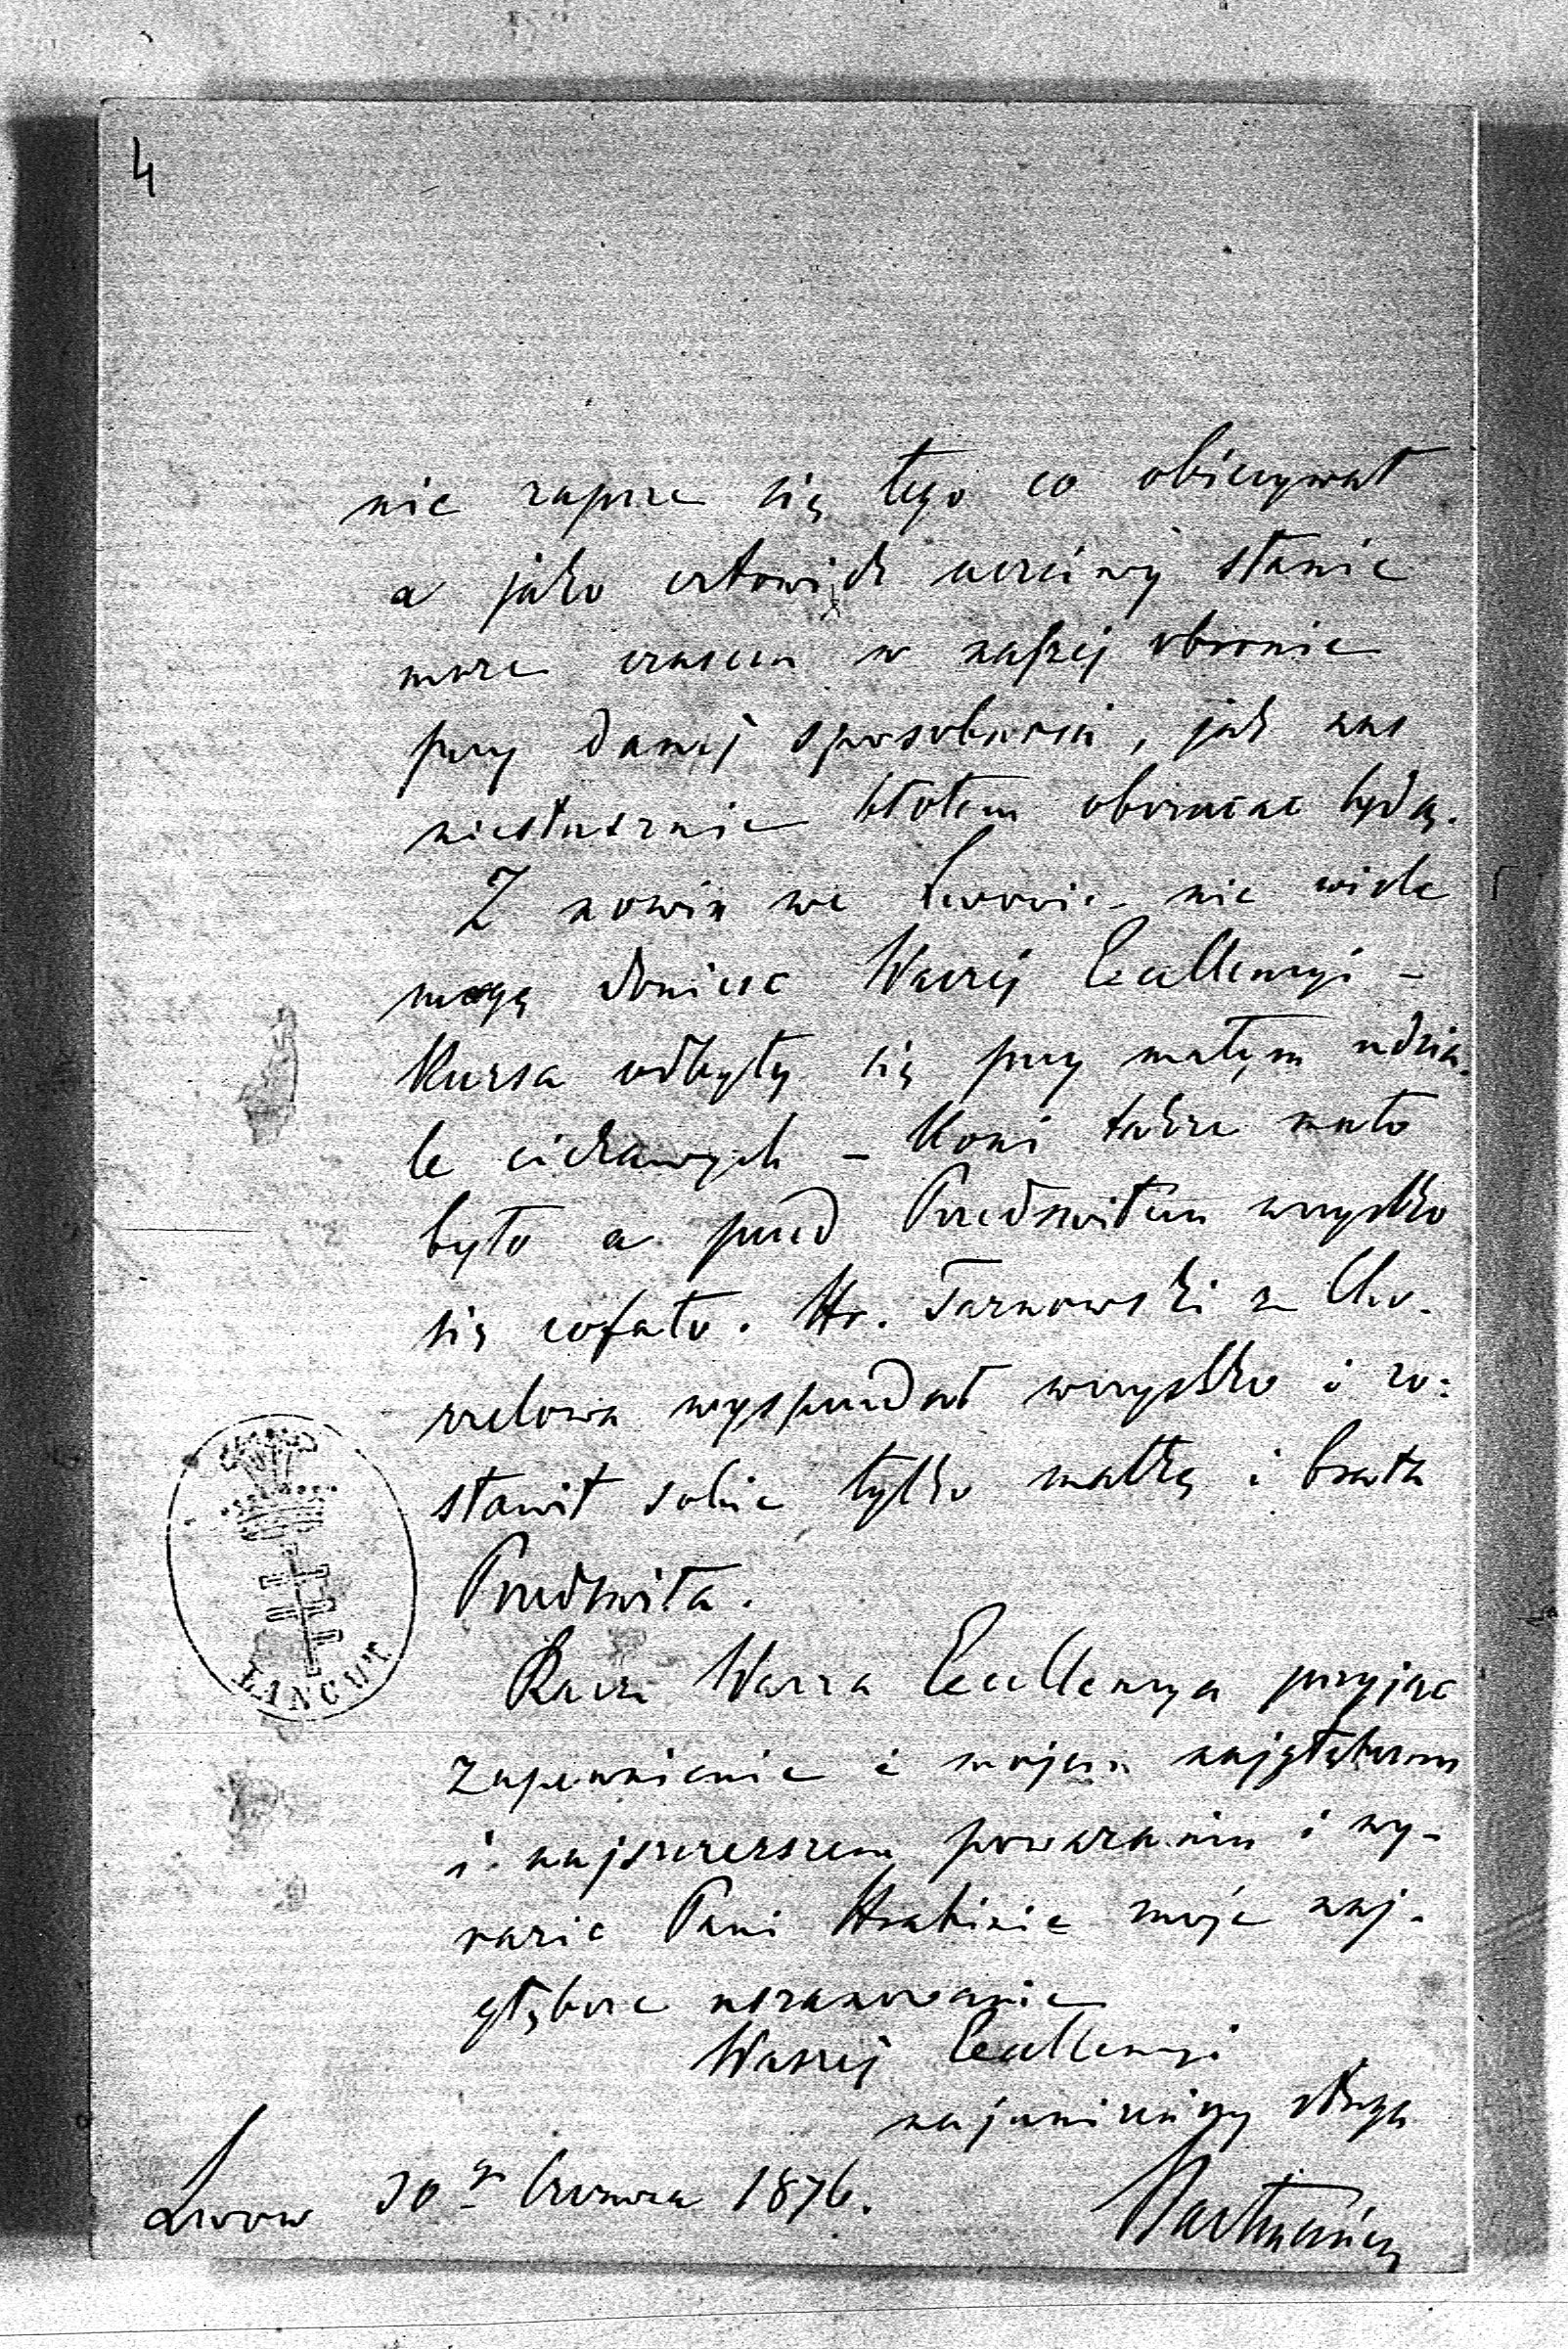 4
nie zaprze się tego co obiecywał
a jako człowiek uczciwy stanie
może czasem w naszej obronie
przy danej sposobności, jak nas
niesłusznie błotem obrzucać będą.
Z nowin we Lwowie nie wiele
mogę donieść Waszej Excellencyi –
Kursa odbyły się przy małym udzia-
le ciekawych – Koni także mało
było a przed Przedświtem wszystko
się cofało. Hr. Tarnowski z Cho-
rzelowa wysprzedał wszystko i zo-
stawił sobie tylko matkę i brata
Przedświta.
Racz Wasza Excellencya przyjąć
zapewnienie o mojem najgłębszem
i najszczerszem poważaniu i wy-
razić Pani Hrabinie moje naj-
głębsze uszanowanie
Waszej Excellencyi
najuniżeńszy sługa
Lwow 30go Czerwca 1876.
ŁAŃCUT